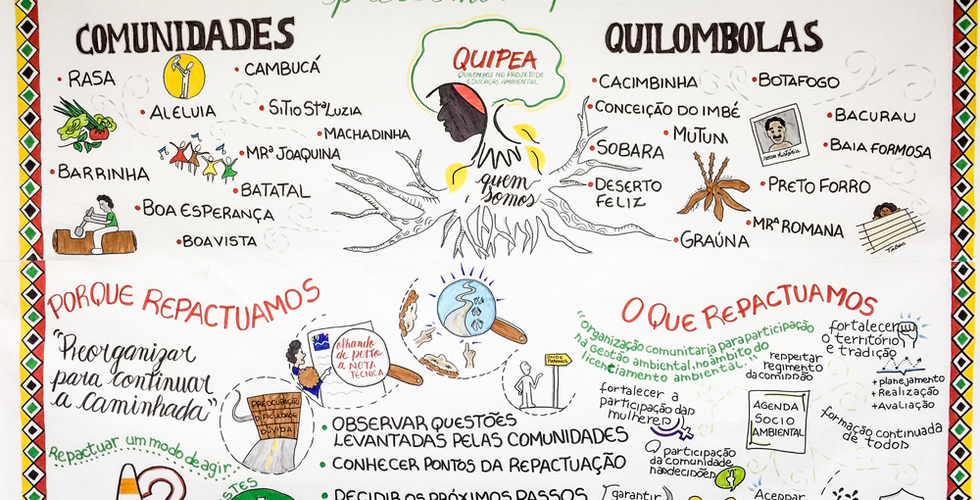 COMUNIDADES
QUILOMBOLAS
QUIPEA
QUILOMBOS NO PROJETO DE
EDUCAÇÃO AMBIENTAL
quem
somos
• RASA
• CAMBUCÁ
• ALELUIA
• SíTIO Stª LUZIA
• MACHADINHA
• MRª JOAQUINA
• BARRINHA
• BATATAL
• BOA ESPERANÇA
• BOA VISTA
• CACIMBINHA
• BOTAFOGO
• CONCEIÇÃO DO IMBÉ
• BACURAU
• MUTUM
• SOBARA
• BAIA FORMOSA
• DESERTO
FELIZ
• PRETO FORRO
• MRª ROMANA
• GRAÚNA
PORQUE REPACTUAMOS
"Reorganizar
para continuar
a caminhada"
olhando
de perto
a NOTA
TÉCNICA
PREOCUPAÇÃO
DIFICULDADE
DÚVIDA
Repactuar um modo de agir.
• OBSERVAR QUESTÕES
LEVANTADAS PELAS COMUNIDADES
• CONHECER PONTOS DA REPACTUAÇÃO
• DECIDIR OS PRÓXIMOS PASSOS
O QUE REPACTUAMOS
"organização comunitária para participação
na Gestão ambiental, no âmbito do
licenciamento ambiental."
fortalecer
o território
e tradição
respeitar
regimento
da comissão
+ planejamento
+ Realização
+ Avaliação
fortalecer a
participação das
mulheres
AGENDA
SOCIO
AMBIENTAL
formação continuada
de todos
participação
da comunidade
nas decisões
garantir
Aceitar